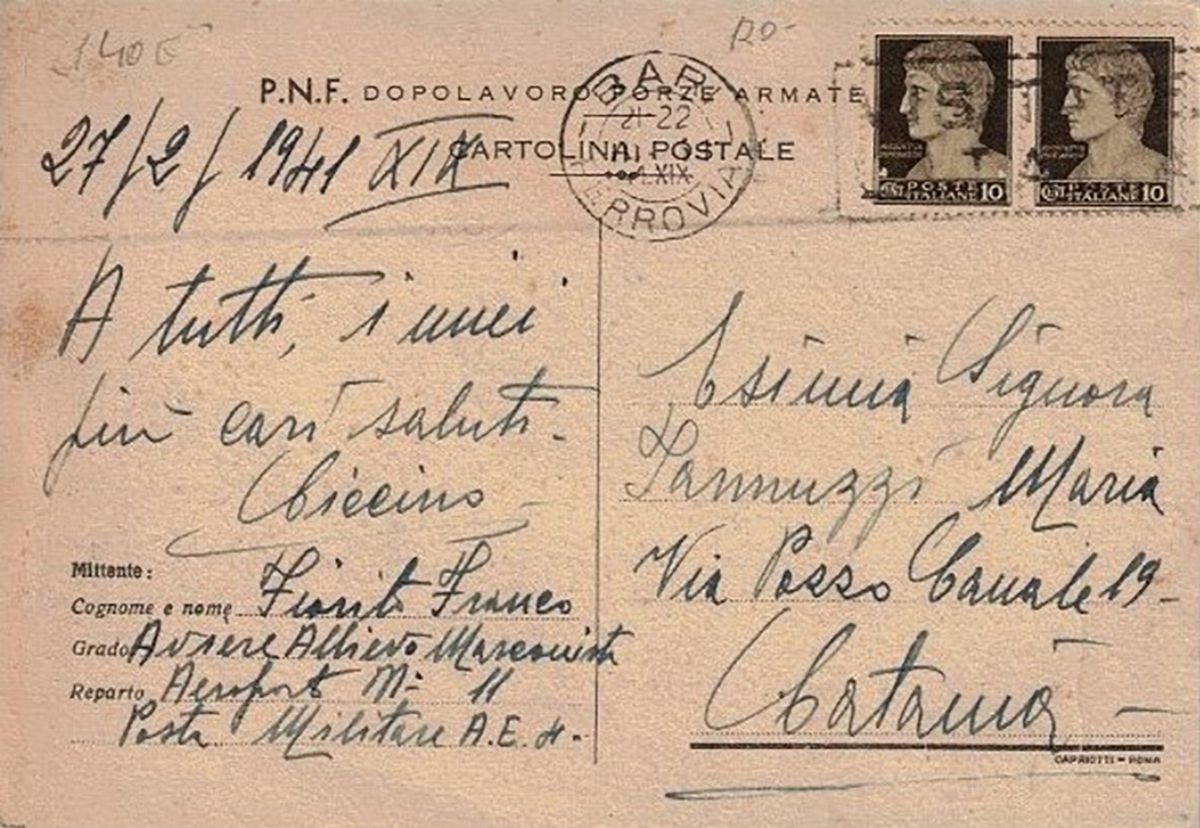 P.N.F. DOPOLAVORO FORZE ARMATE
CARTOLINA POSTALE
27/2/1941 XIX
BARI
21-22
XIX
FERROVIA
POSTE ITALIANE 10
POSTE ITALIANE 10
A tutti, i miei
più cari saluti.
Ciccino
Mittente:
Cognome e nome Fiorito Franco
Grado Aviere Allievo Marconista
Reparto Aeroporto N° 11
Posta Militare A.E. 4.
Esimia Signora
Iannuzzi Maria
Via Pozzo Canale 19-
Catania
CAPRIOTTI - ROMA